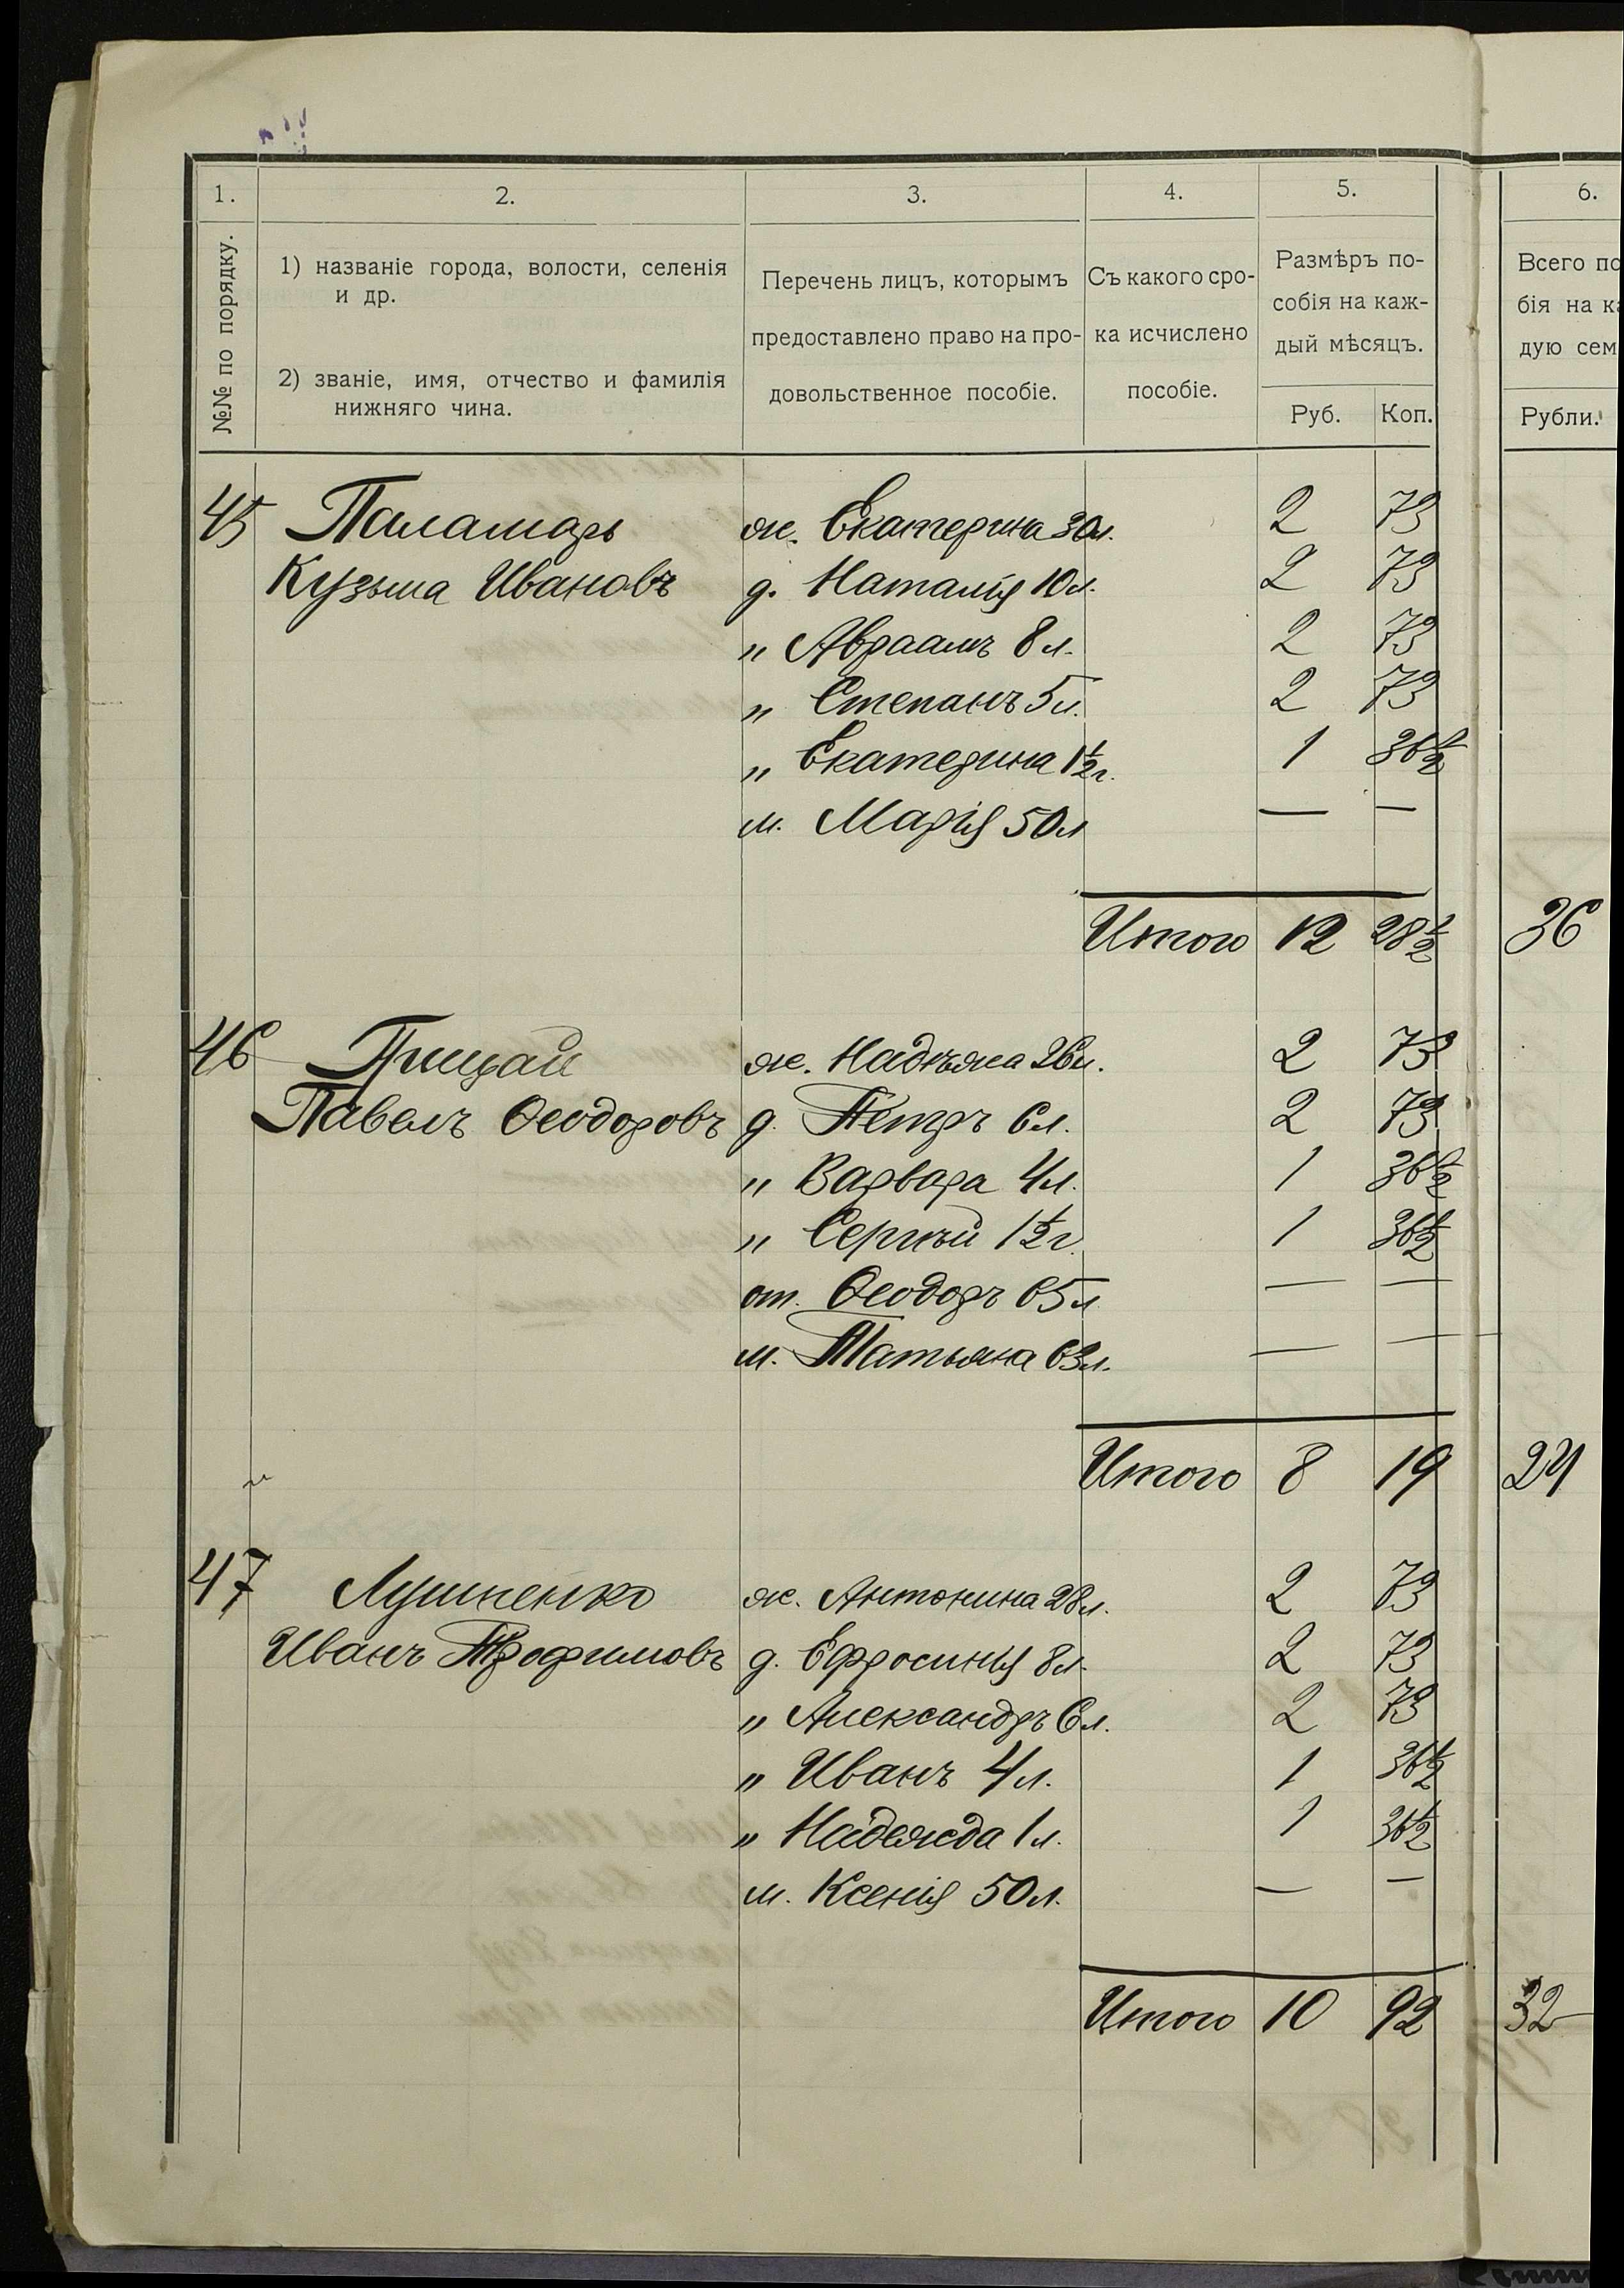 1. 2. 3. 4. 5. 6.
№№ по порядку.
1) названіе города, волости, селенія
и др.
2) званіе, имя, отчество и фамилія
нижняго чина.
Перечень лицъ, которымъ
предоставлено право на про-
довольственное пособіе.
Съ какого сро-
ка исчислено
пособіе.
Размѣръ по-
собія на каж-
дый мѣсяцъ.
Руб. Коп.
Всего по
бія на ка
дую сем
Рубли.
45 Паламарь ж. Екатерина 30 л. 2 73
Кузьма Ивановъ д. Наталія 10 л. 2 73
" Авраамъ 8 л. 2 73
" Степанъ 5 л. 2 73
" Екатерина 1½ г. 1 36½
м. Марія 50 л — —
Итого 12 28½ 36
46 Грицай ж. 26 л. 2 73
Павелъ Ѳеодоровъ д. Петръ 6 л. 2 73
" Варвара 4 л. 1 36½
" Сергѣй 1½ г. 1 36½
от. Ѳеодоръ 65 л — —
м. Татьяна 63 л. — —
Итого 8 19 24
47 Лушпенко ж. Антонина 28 л. 2 73
Иванъ Трофимовъ д. Ефросинія 8 л. 2 73
" Александръ 6 л. 2 73
" Иванъ 4 л. 1 36½
" Надежда 1 л. 1 36½
м. Ксенія 50 л. — —
Итого 10 92 32